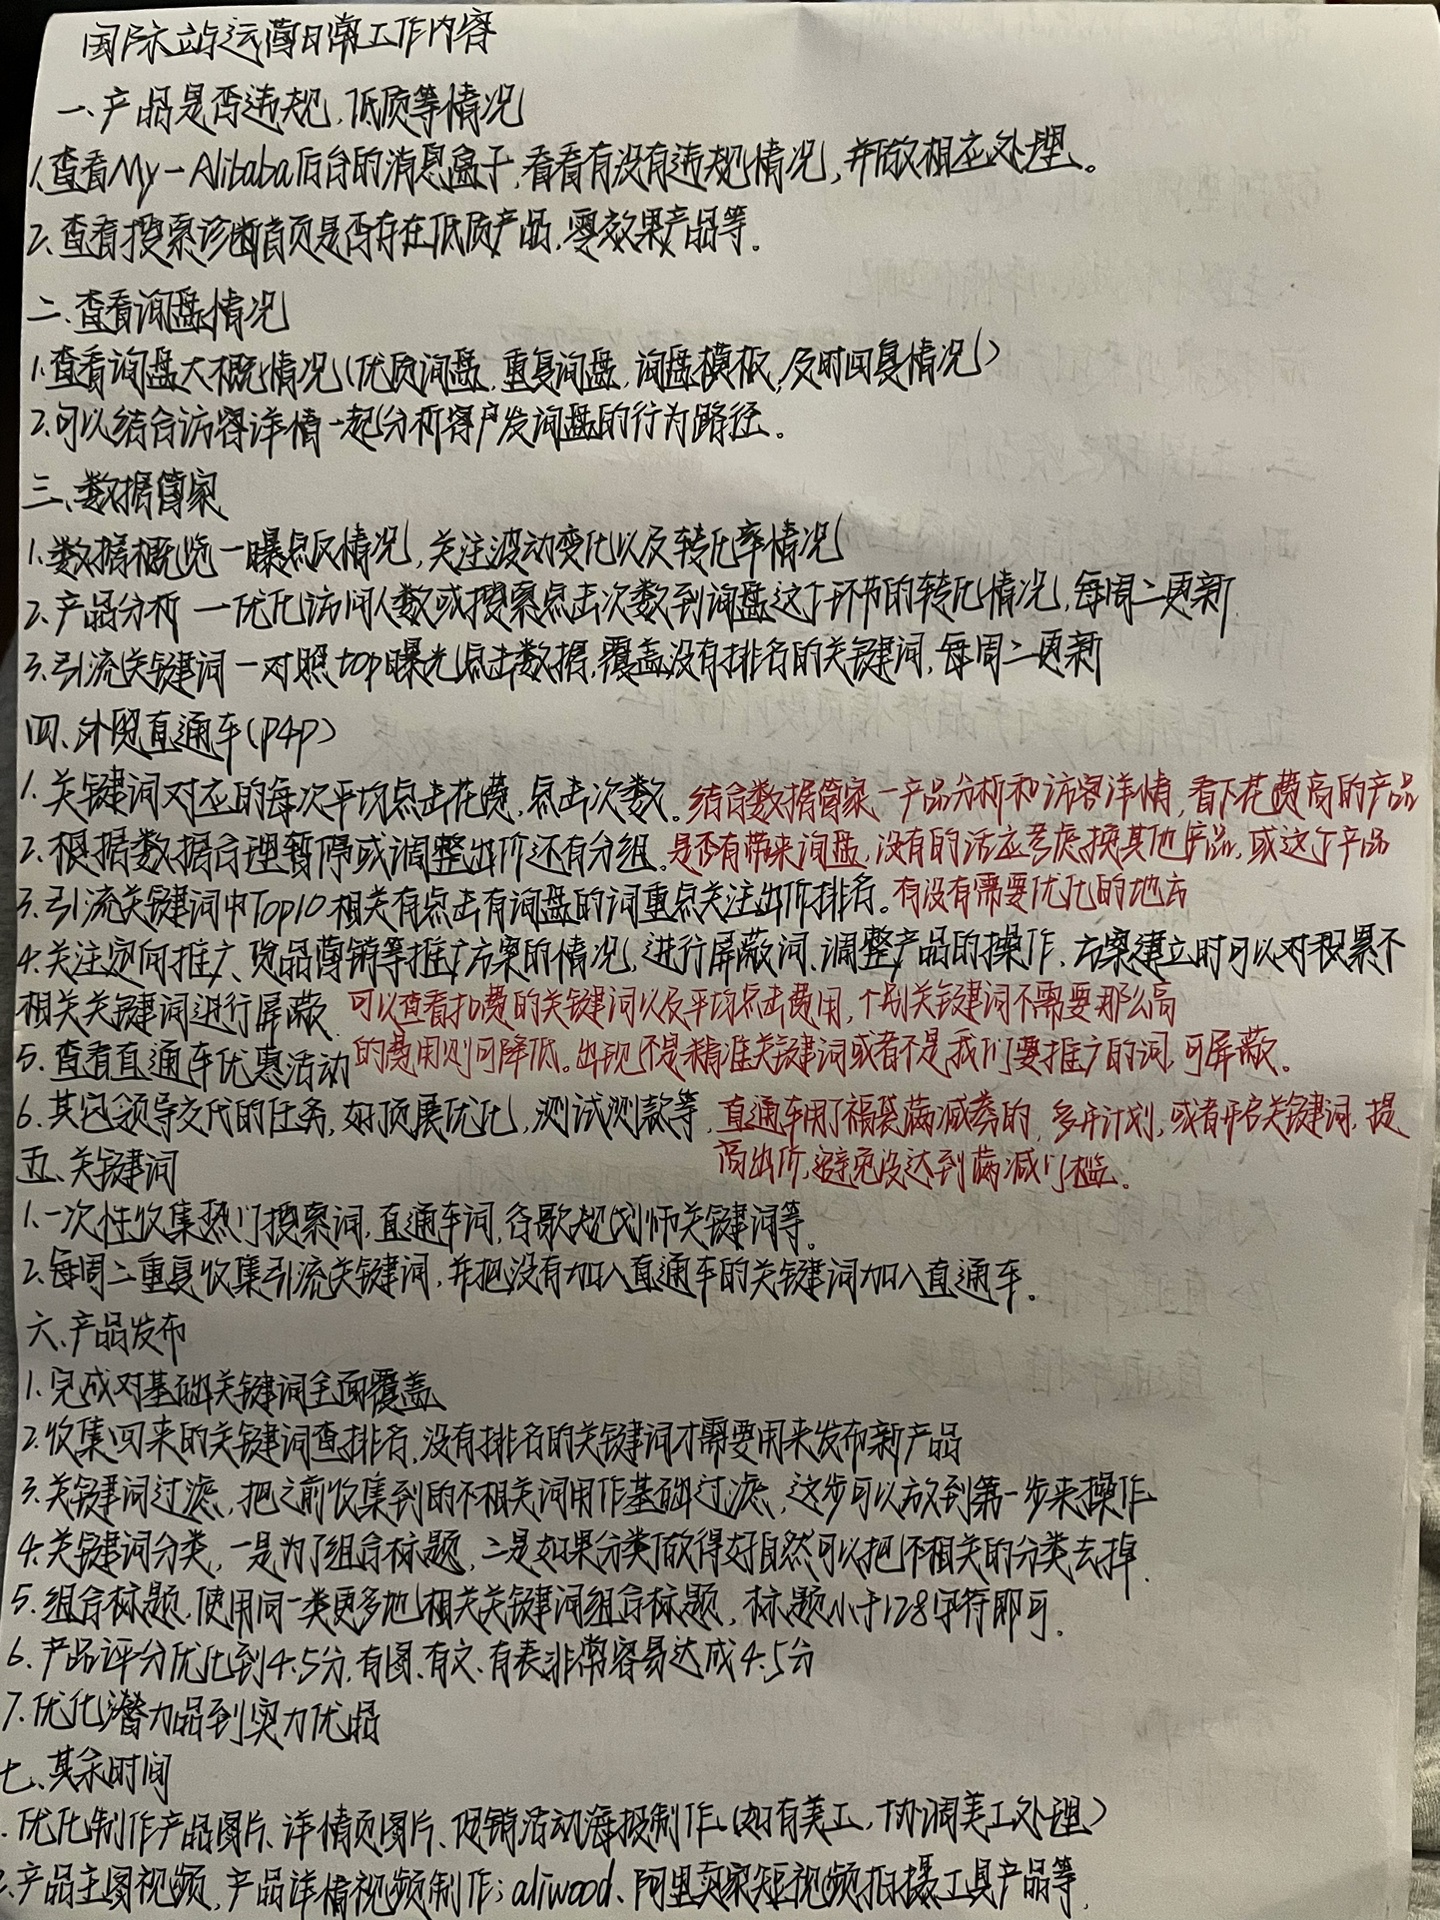 国际站运营日常工作内容
一、产品是否违规,低质等情况
1.查看My-Alibaba后台的消息盒子,看看有没有违规情况,并做相应处理。
2.查看搜索诊断首页是否存在低质产品.零效果产品等.
二、查看询盘情况
1.查看询盘大概情况(优质询盘,重复询盘,询盘模板,及时回复情况)
2.可以结合访客详情一起分析客户发询盘的行为路径。
三、数据管家
1.数据概览一曝点反情况,关注波动变化以及转化率情况
2.产品分析 一优化访问人数或搜索点击次数到询盘这个环节的转化情况,每周二更新.
3.引流关键词一对照top曝光点击数据,覆盖没有排名的关键词,每周二更新
四、外贸直通车(P4P)
1.关键词对应的每次平均点击花费,点击次数。结合数据管家一产品分析和访客详情,看下花费高的产品
2.根据数据合理暂停或调整出价还有分组.是否有带来询盘,没有的话应考虑换其他产品,或这个产品
3.引流关键词中Top10相关有点击有询盘的词重点关注出价排名。有没有需要优化的地方
4.关注定向推广、爆品营销等推广方案的情况,进行屏蔽词、调整产品的操作.方案建立时可以对积累不
相关关键词进行屏蔽. 可以查看扣费的关键词以及平均点击费用,个别关键词不需要那么高
5.查看直通车优惠活动 的费用则可降低。出现不是精准关键词或者不是我们要推广的词,可屏蔽。
6.其它领导交代的任务,如顶展优化,测试测款等.直通车用了福袋满减券的,多开计划,或者开启关键词,提
高出价,避免没达到满减门槛。
五、关键词
1.一次性收集热门搜索词,直通车词,谷歌规划师关键词等。
2.每周二重复收集引流关键词,并把没有加入直通车的关键词加入直通车.
六、产品发布
1.完成对基础关键词全面覆盖
2.收集回来的关键词查排名,没有排名的关键词才需要用来发布新产品
3.关键词过滤,把之前收集到的不相关词用作基础过滤,这步可以放到第一步来操作
4.关键词分类,一是为了组合标题,二是如果分类做得好自然可以把不相关的分类去掉.
5.组合标题,使用同一类更多地相关关键词组合标题,标题小于128字符即可.
6.产品评分优化到4.5分,有图、有文、有表非常容易达成4.5分
7.优化潜力品到实力优品
七、其余时间
.优化制作产品图片、详情页图片、促销活动海报制作.(如有美工,协调美工处理)
.产品主图视频,产品详情视频制作;aliwood、阿里卖家短视频拍摄工具产品等.